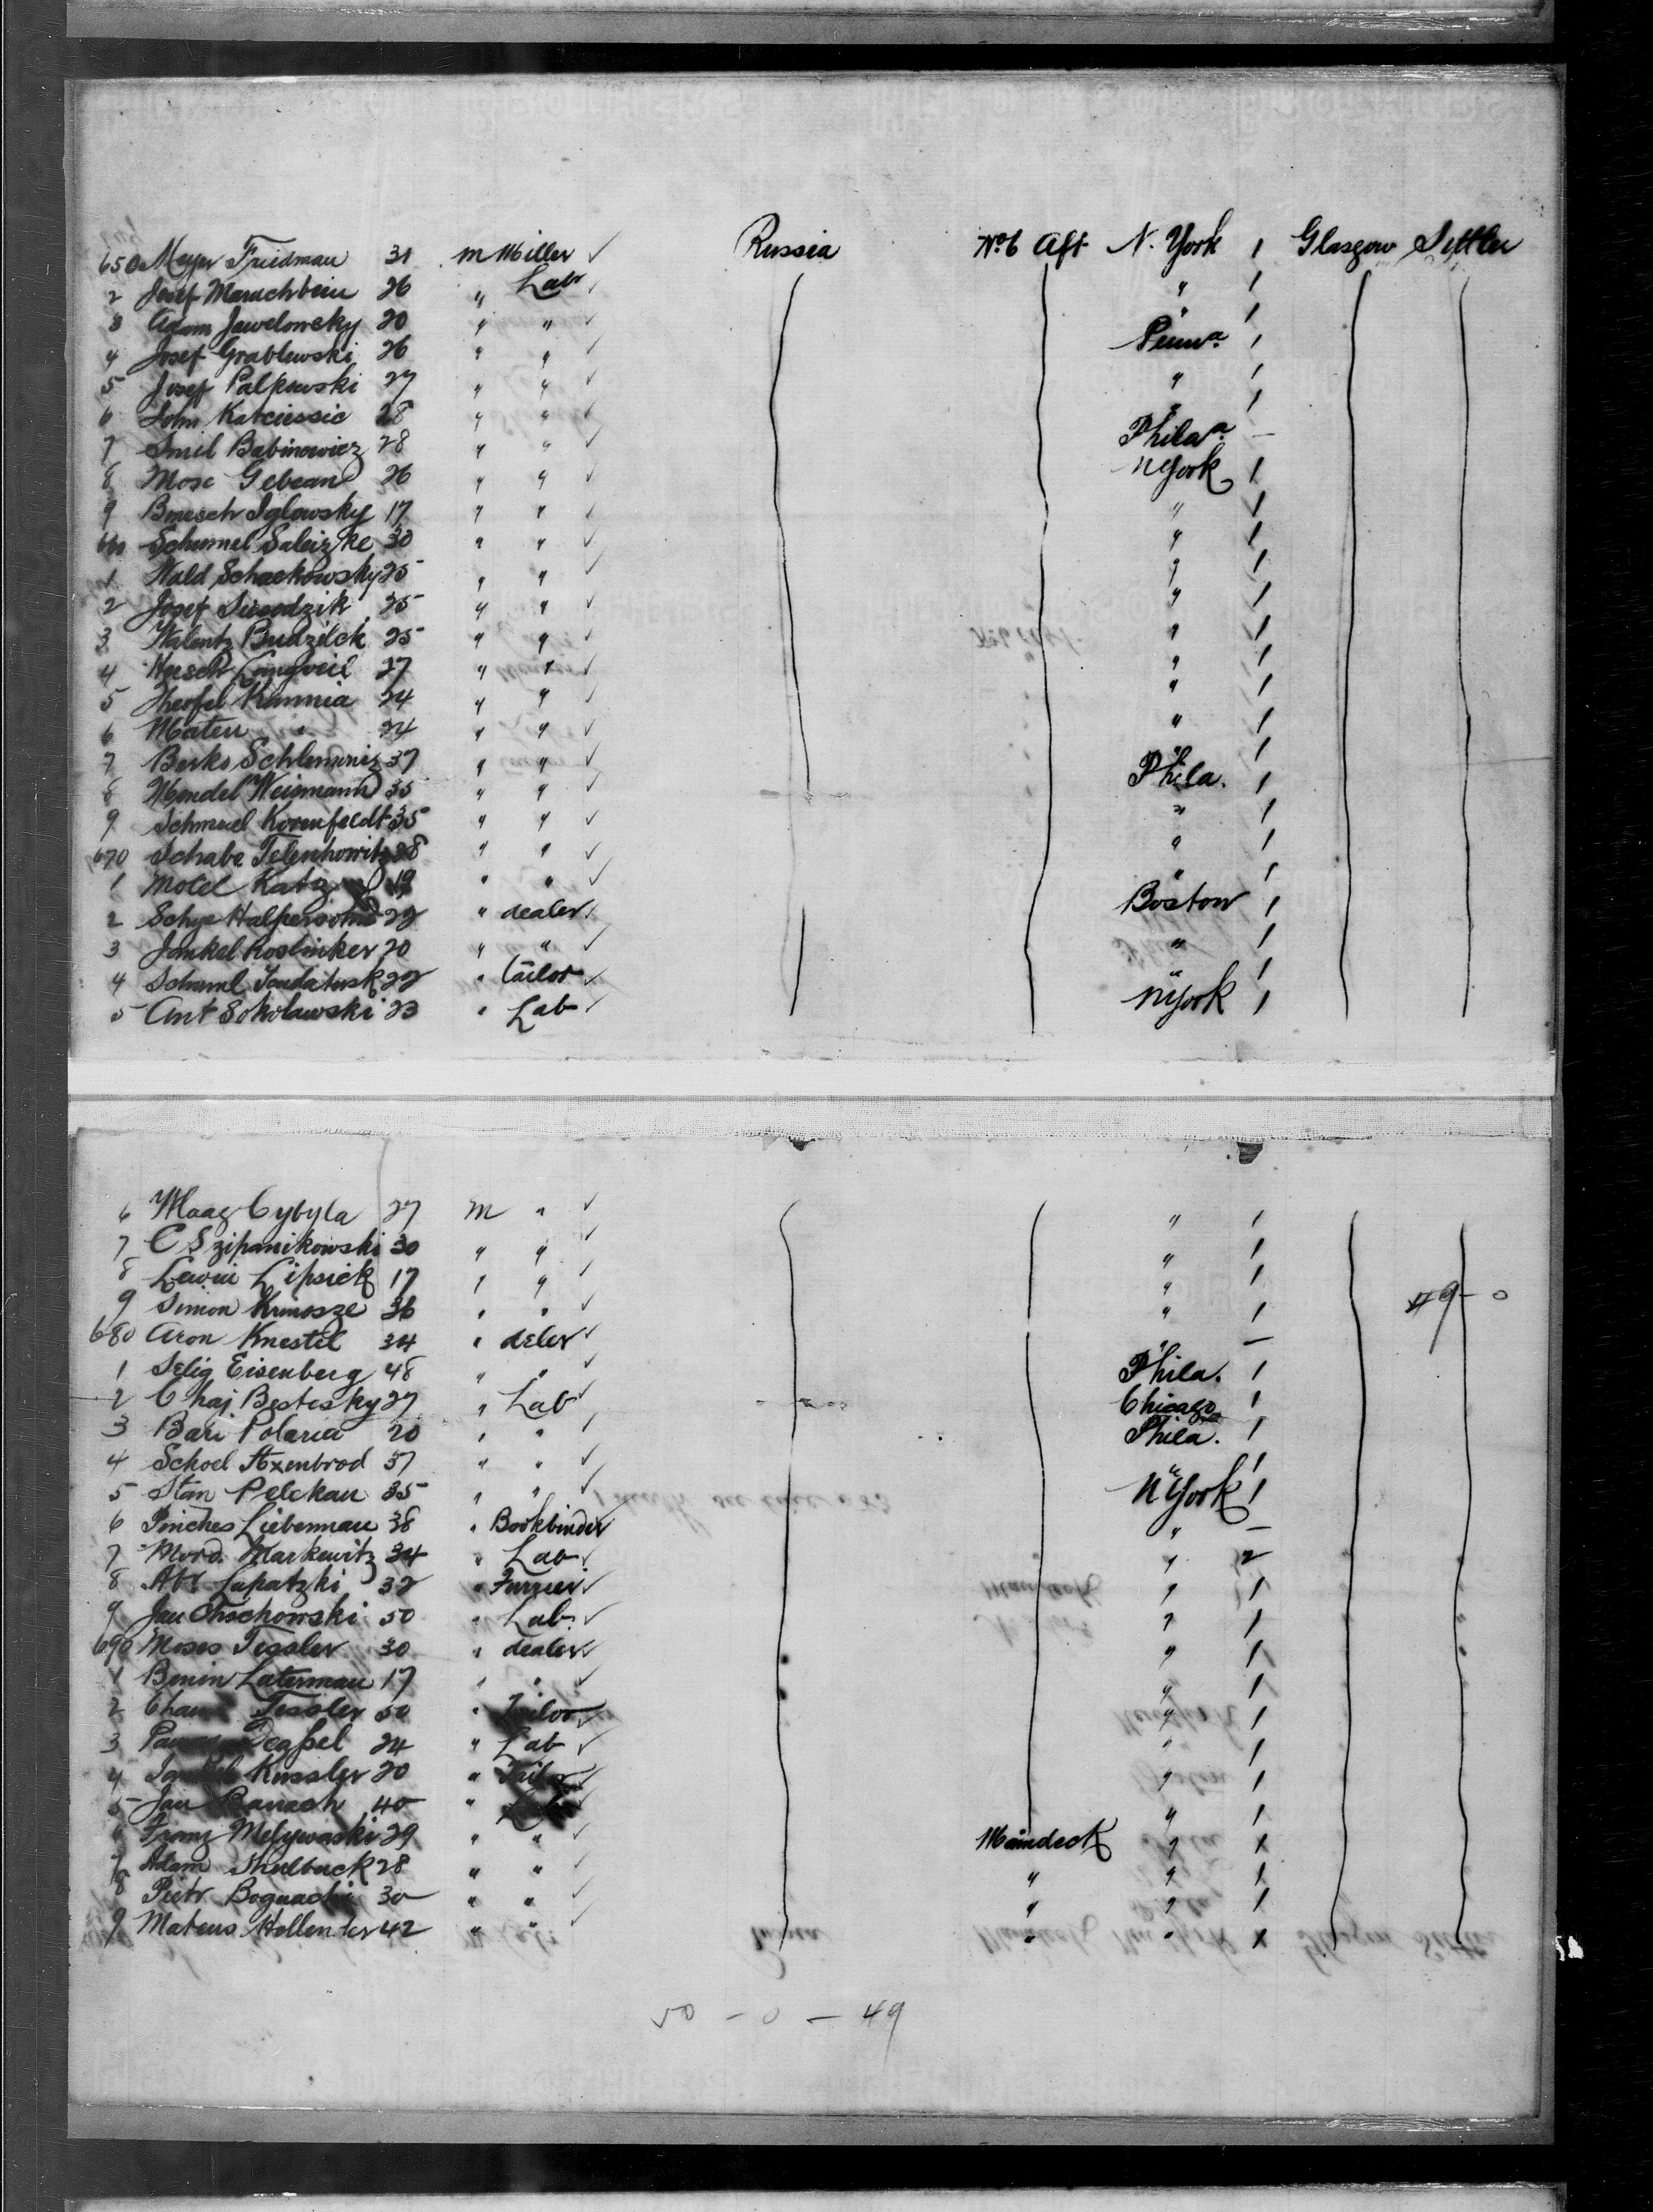 650 Meyer Friedman 31 m Miller ✓ Russia No 6 Aft N. York 1 Glasgow Settler
2 Josef Maruchbein 26 " Lab ✓ " 1
3 Adam Jawelowsky 20 " " ✓ " 1
4 Josef Grablewski 26 " " ✓ Penna. 1
5 Josef Palkowski 27 " " ✓ " 1
6 John Katciessic 28 " " ✓ " 1
7 Smil Babinowicz 28 " " ✓ Phila. —
8 Mose Gebean 26 " " ✓ NYork 1
9 Bmesch Iglowsky 17 " " ✓ " 1
660 Schumel Saleizke 30 " " ✓ " 1
1 Wald Schackowsky 25 " " ✓ " 1
2 Josef 25 " " ✓ " 1
3 Walentz Budzilck 25 " " ✓ " 1
4 27 " " ✓ " 1
5 Kamnia 24 " " ✓ " 1
6 Maten " 24 " " ✓ " 1
7 Berko Schlemniz 37 " " ✓ " 1
8 Mendel Weismann 35 " " ✓ Phila. 1
9 Schmuel Korenfeldt 35 " " ✓ " 1
670 Schabe Telenhowitz 28 " " ✓ " 1
1 Motel Katz 19 " " ✓ " 1
2 Schye Halpersohn 22 " dealer ✓ Boston 1
3 Jankel Roslinker 20 " " ✓ " 1
4 Schuml 22 " Tailor ✓ " 1
5 Ant Sokolawski 23 " Lab ✓ NYork 1
6 Maag Cybyla 27 m " ✓ " 1
7 C Szipanikowski 30 " " ✓ " 1
8 Lewin Lipsick 17 " " ✓ " 1
9 Simon Krinosze 36 " " ✓ " 1 49 - 0
680 Aron Knestel 34 " deler ✓ " —
1 Selig Eisenberg 48 " " ✓ Phila. 1
2 Chaj Bestesky 27 " Lab ✓ Chicago 1
3 Bari Polaria 20 " " ✓ Phila. 1
4 Schoel Axenbrod 37 " " ✓ " 1
5 Stan Pelckau 35 " " ✓ NYork 1
6 Pinches Lieberman 38 " Bookbinder ✓ " —
7 Mord. Markewitz 34 " Lab ✓ " 2
8 Abr Lapatzki 32 " Furrier ✓ " 1
9 Jan Chochowski 50 " Lab. ✓ " 1
690 Moses Tessler 30 " dealer ✓ " 1
1 Benin Laterman 17 " " ✓ " 1
2 Tessler 50 " Tailor ✓ " 1
3 24 " Lab ✓ " 1
4 Kussler 20 " Tailor ✓ " 1
5 Jan Banach 40 " Lab ✓ " 1
6 Franz Melywaski 29 " " ✓ Maindeck " x
7 Adam Shulbuck 28 " " ✓ " " 1
8 Piotr Bognacki 30 " " ✓ " " 1
9 Mateus Hollender 42 " " ✓ " " x
50 - 0 - 49